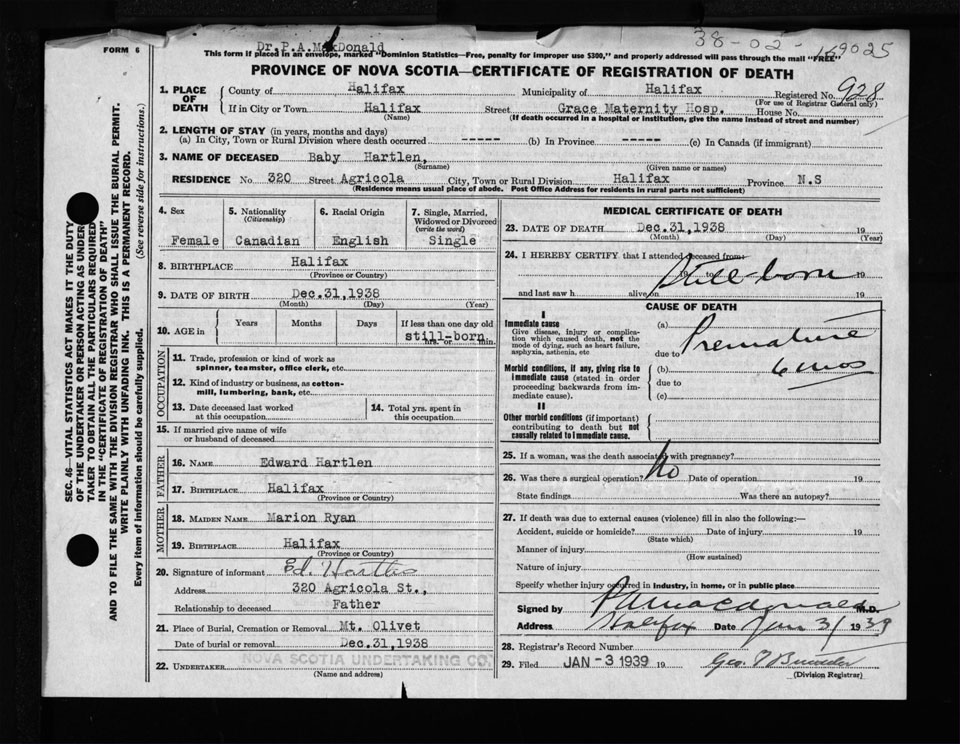 FORM 6
Dr. P.A. MacDonald
38-02-
169025
This form if placed in an envelope, marked "Dominion Statistics—Free, penalty for improper use $300," and properly addressed will pass through the mail "FREE"
PROVINCE OF NOVA SCOTIA—CERTIFICATE OF REGISTRATION OF DEATH
1. PLACE OF DEATH
County of Halifax Municipality of Halifax Registered No. 928
(For use of Registrar General only)
If in City or Town Halifax Street Grace Maternity Hosp. House No.
(Name) (If death occurred in a hospital or institution, give the name instead of street and number)
2. LENGTH OF STAY (in years, months and days)
(a) In City, Town or Rural Division where death occurred ----- (b) In Province ----- (c) In Canada (if immigrant)
3. NAME OF DECEASED Baby Hartlen,
(Surname) (Given name or names)
RESIDENCE No. 320 Street Agricola City, Town or Rural Division Halifax Province N.S
(Residence means usual place of abode. Post Office Address for residents in rural parts not sufficient)
4. Sex Female
5. Nationality (Citizenship) Canadian
6. Racial Origin English
7. Single, Married, Widowed or Divorced (write the word) Single
8. BIRTHPLACE Halifax
(Province or Country)
9. DATE OF BIRTH Dec.31,1938
(Month) (Day) (Year)
10. AGE in Years Months Days If less than one day old
still-born
hrs. or min.
OCCUPATION
11. Trade, profession or kind of work as spinner, teamster, office clerk, etc.
12. Kind of industry or business, as cotton-mill, lumbering, bank, etc.
13. Date deceased last worked at this occupation
14. Total yrs. spent in this occupation
15. If married give name of wife or husband of deceased
FATHER
16. NAME Edward Hartlen
17. BIRTHPLACE Halifax
(Province or Country)
MOTHER
18. MAIDEN NAME Marion Ryan
19. BIRTHPLACE Halifax
(Province or Country)
20. Signature of informant Ed. Hartlen
Address 320 Agricola St.,
Relationship to deceased Father
21. Place of Burial, Cremation or Removal Mt. Olivet
Date of burial or removal Dec.31,1938
22. UNDERTAKER NOVA SCOTIA UNDERTAKING CO.
(Name and address)
MEDICAL CERTIFICATE OF DEATH
23. DATE OF DEATH Dec.31,1938 19
(Month) (Day) (Year)
24. I HEREBY CERTIFY that I attended deceased from:
19 to 19
Still born
and last saw h alive on 19
CAUSE OF DEATH
I
Immediate cause
Give disease, injury or complication which caused death, not the mode of dying, such as heart failure, asphyxia, asthenia, etc
(a) Premature
due to
Morbid conditions, if any, giving rise to immediate cause (stated in order proceeding backwards from immediate cause).
(b) 6 mos
due to
(c)
II
Other morbid conditions (if important) contributing to death but not causally related to immediate cause.
25. If a woman, was the death associated with pregnancy?
26. Was there a surgical operation? No Date of operation 19
State findings Was there an autopsy?
27. If death was due to external causes (violence) fill in also the following:—
Accident, suicide or homicide? Date of injury 19
(State which)
Manner of injury
(How sustained)
Nature of injury
Specify whether injury occurred in industry, in home, or in public place
Signed by P A MacDonald M.D.
Address Halifax Date Jan 3/ 1939
28. Registrar's Record Number
29. Filed JAN -3 1939 19
(Division Registrar)
SEC. 46—VITAL STATISTICS ACT MAKES IT THE DUTY
OF THE UNDERTAKER OR PERSON ACTING AS UNDER
TAKER TO OBTAIN ALL THE PARTICULARS REQUIRED
IN THE "CERTIFICATE OF REGISTRATION OF DEATH"
AND TO FILE THE SAME WITH THE DIVISION REGISTRAR WHO SHALL ISSUE THE BURIAL PERMIT.
WRITE PLAINLY WITH UNFADING INK. THIS IS A PERMANENT RECORD.
Every item of information should be carefully supplied. (See reverse side for instructions.)